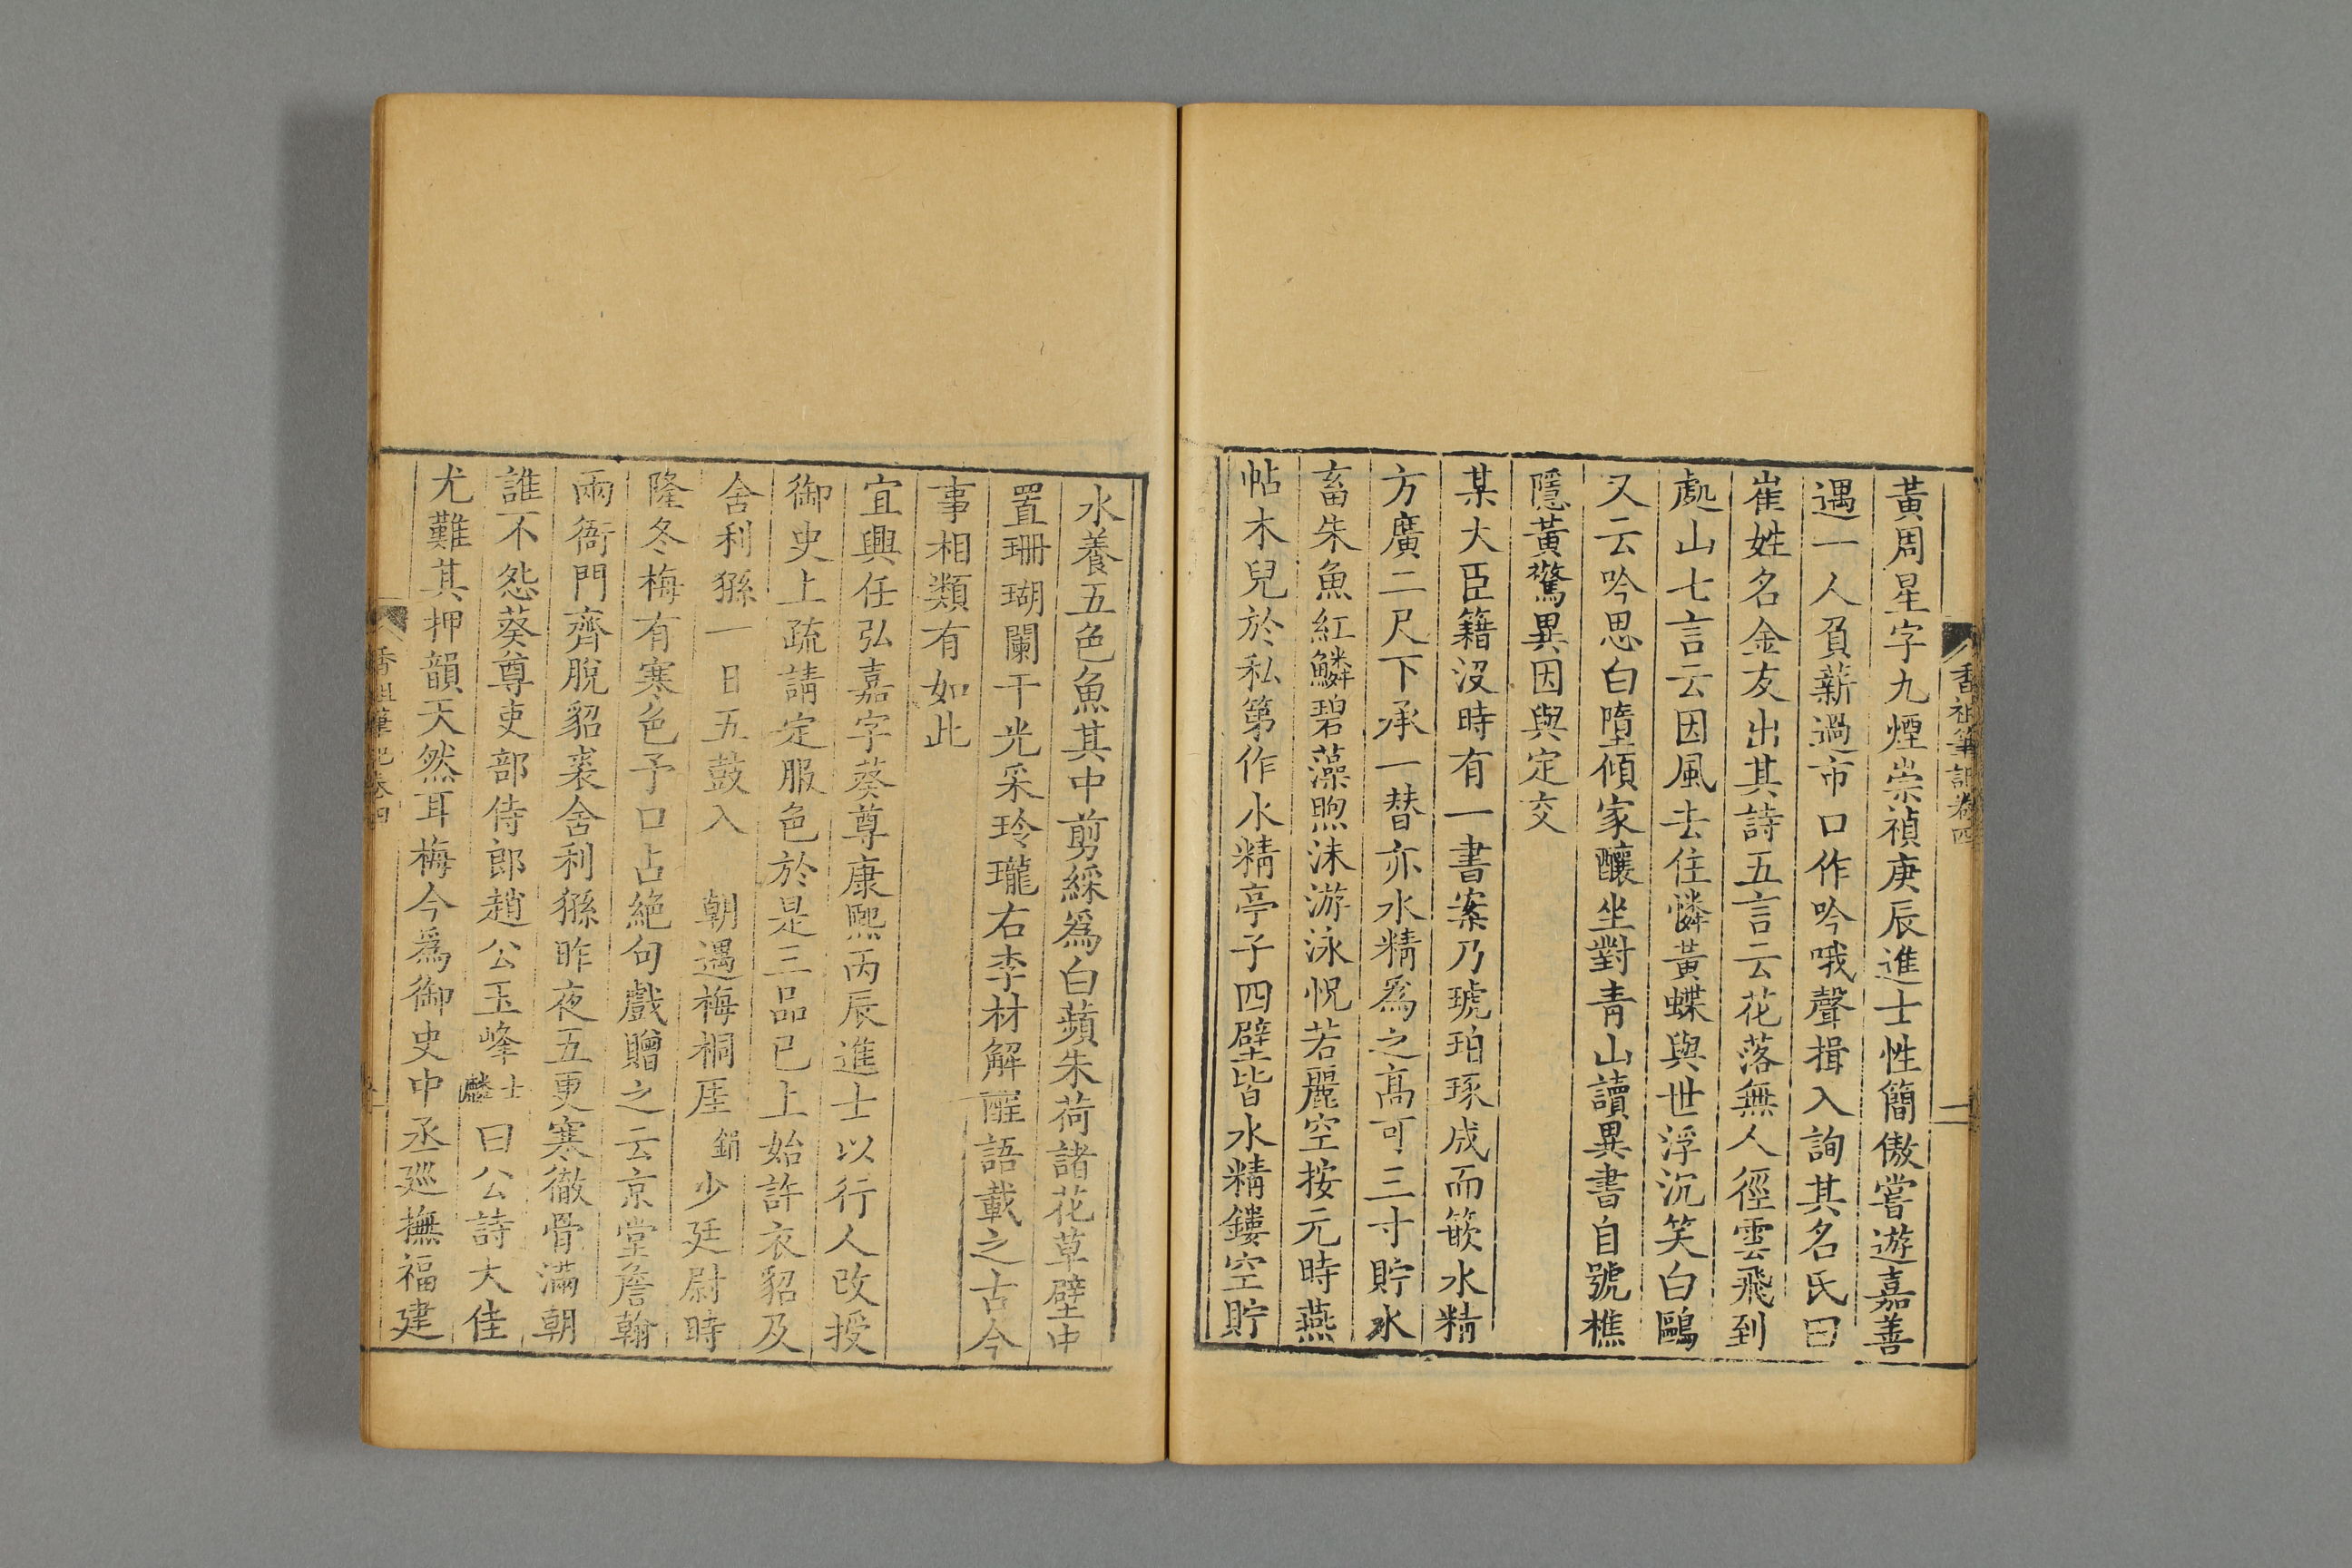 香祖筆記卷四
二
黃周星字九煙崇禎庚辰進士性簡傲嘗遊嘉善
遇一人負薪過市口作吟哦聲揖入詢其名氏曰
崔姓名金友出其詩五言云花落無人徑雲飛到
處山七言云因風去住憐黃蝶與世浮沉笑白鷗
又云吟思白墮傾家釀坐對青山讀異書自號樵
隱黃驚異因與定交
某大臣籍沒時有一書案乃琥珀琢成而篏水精
方廣二尺下承一替亦水精爲之高可三寸貯水
畜朱魚紅鱗碧藻煦沫游泳怳若麗空按元時燕
帖木兒於私第作水精亭子四壁皆水精鏤空貯
水養五色魚其中剪綵爲白蘋朱荷諸花草壁中
置珊瑚闌干光采玲瓏右李材解酲語載之古今
事相類有如此
宜興任弘嘉字葵尊康熙丙辰進士以行人改授
御史上疏請定服色於是三品已上始許衣貂及
舍利猻一日五鼓入 朝遇梅桐厓鋗少廷尉時
隆冬梅有寒色予口占絕句戲贈之云京堂詹翰
兩衙門齊脫貂裘舍利猻昨夜五更寒徹骨滿朝
誰不怨葵尊吏部侍郎趙公玉峰士麟曰公詩大佳
尤難其押韻天然耳梅今爲御史中丞廵撫福建
香祖筆記卷四